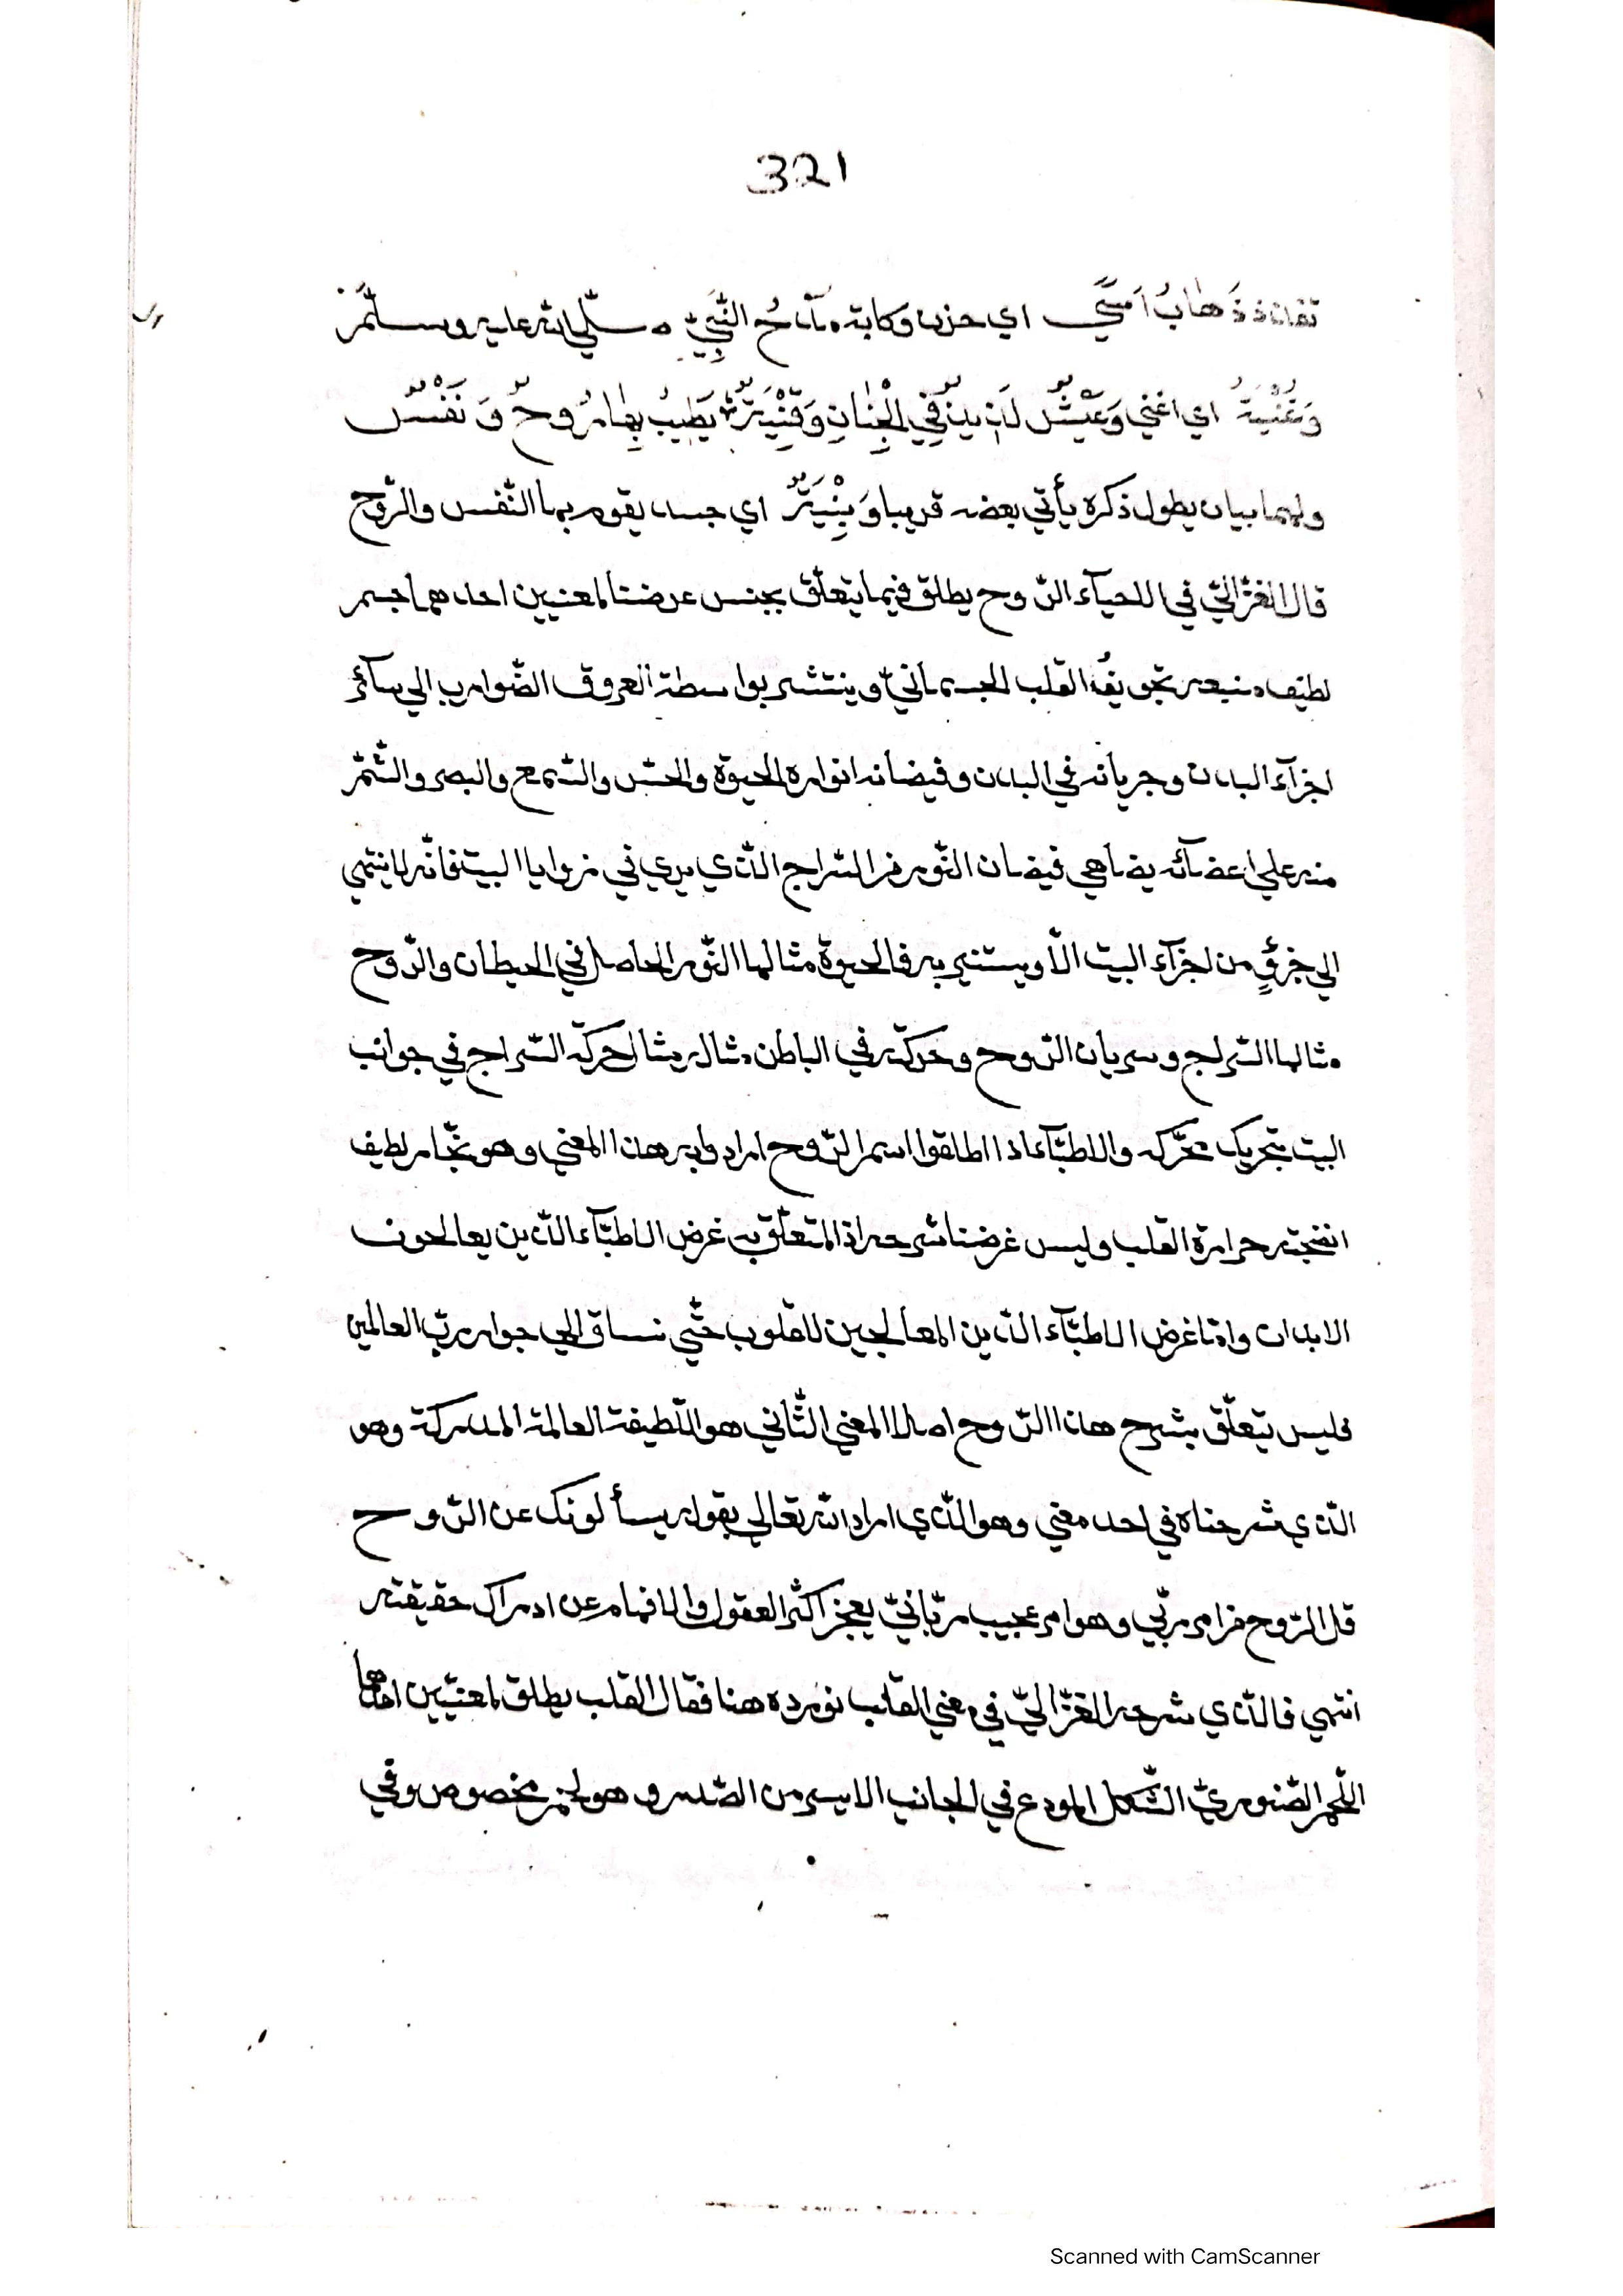 321
ذَهابُ أسًى اي حزن وكابة مدحُ النَّبِيِّ صلّى الله عليه وسلّم
وَغُنْيَةٌ اي اغني وَعَيْشٌ لَذِيذٌ فِي الْجِنَانِ وَقِنْيَةٌ يَطِيبُ بِهَا رُوحٌ وَنَفْسٌ
ولهما بيان يطول ذكره يأتي بعضه قريبا وَبِنْيَةٌ اي جسد يقوم بها النّفس والرّوح
قال الغزّاليّ في الاحيآء الرّوح يطلق فيما يتعلّق بجنس غرضنا لمعنيين احدهما جسم
لطيف منبعه تجويفُ القلب الجسمانيّ وينتشر بواسطة العروق الضّوارب الي سآئر
اجزآء البدن وجريانه في البدن وفيضانه انواره الحيوة والحسّ والسّمع والبصر والشّمّ
منه علي اعضآئه يضاهي فيضان النّور من السّراج الّذي يدري في زوايا البيت فانّه لا ينتهي
الي جزؤٍ من اجزآء البيت الّا ويستنير به فالحيوة مثالها النّور الحاصل في الحيطان والرّوح
مثالها السّراج وسريان الرّوح وحركته في الباطن مثاله مثال حركة السّراج في جوانب
البيت بتحريك محّركه والاطبّآء اذا اطلقوا اسم الرّوح ارادوا به هذا المعني وهو بخّار لطيف
انضجته حرارة القلب وليس غرضنا شرحه اذ المتعلّق به غرض الاطبّآء الّذين يعالجون
الابدان وامّا غرض الاطبّآء الّذين المعالجين للقلوب حتّي نساق الي جوار ربّ العالمين
فليس يتعلّق بشرح هذا الرّوح اصلا المعني الثّاني هو اللّطيفة العالمة المدركة وهو
الّذي شرحناه في احد معني وهو الّذي اراد الله تعالي بقوله يسألونك عن الرّوح
قل الرّوح من امر ربّي وهو امر عجيب ربّانيّ يعجز اكثر العقول والافهام عن ادراك حقيقته
انتهي فالّذي شرحه الغزّاليّ في معني القلب نورده هنا فقال القلب يطلق لمعنيين احدها
اللّحم الصّنوبريّ الشّكل المودع في الجانب الايسر من الصّدر وهو لحم مخصوص وفي
Scanned with CamScanner